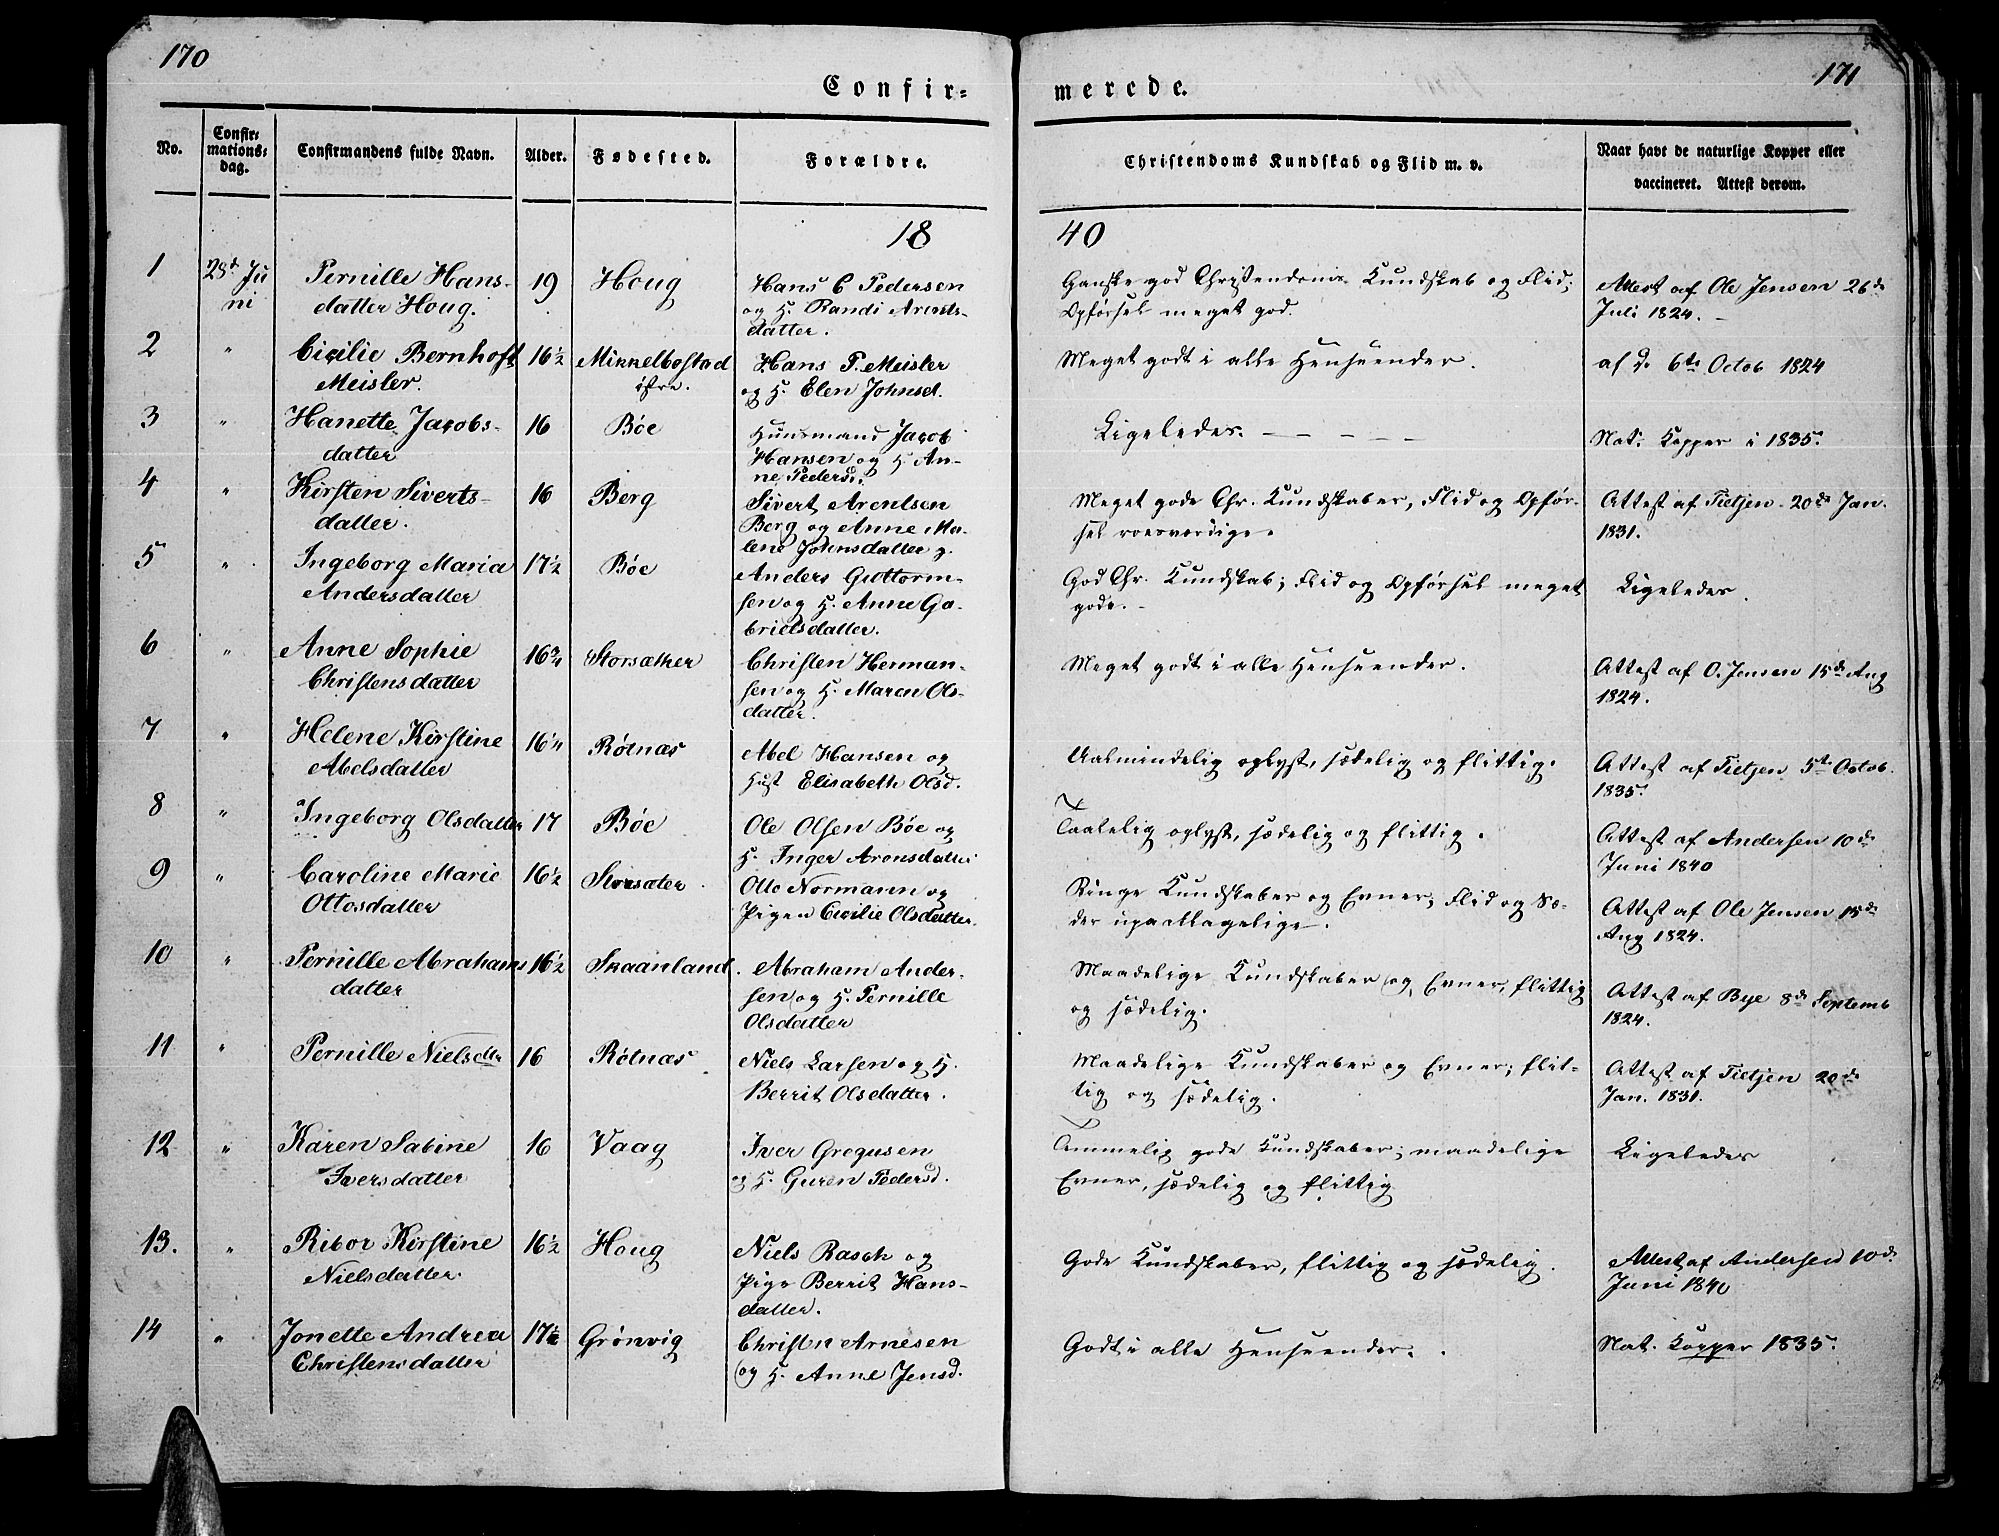 170
171
Confir=
merede.
No.
Confir=
mations=
dag.
Confirmandens fulde Navn.
Alder.
Fødested.
Forældre.
Christendoms Kundskab og Flid m. v.
Naar havt de naturlige Kopper eller
vaccineret. Attest derom.
18
40
1
28d Ju
ni
Pernille Hans-
datter Houg.
19
Houg
Hans C Pedersen
og H. Randi Arents-
datter.
Ganske god Christendoms Kundskab og Flid;
Opførsel meget god.
Attest af Ole Jensen 26de
Juli 1824.
2
"
Cicilie Bernhoft
Meisler.
16½
Mikkelbostad
østre.
Hans P. Meisler
og H. Elen Johnsd.
Meget godt i alle Henseender.
af d. 6te Octob 1824
3
"
Hanette Jacobs-
datter
16
Bøe
Huusmand Jacob
Hansen og H. An-
ne Pedersd.
Ligeledes.
Nat. Kopper i 1835.
4
"
Kirsten Siverts-
datter.
16
Berg
Sivert Arentsen
Berg og Anne Ma-
lene Johnsdatter
Meget gode Chr. Kundskaber, Flid og Opfør-
sel roesværdige.
Attest af Tietjen 20de Jan.
1831.
5
"
Ingeborg Maria
Andersdatter
17½
Bøe
Anders Guttorm-
sen og H. Anne Ga-
brielsdatter.
God Chr. Kundskab; Flid og Opførsel meget
gode.
Ligeledes.
6
"
Anne Sophie
Christensdatter
16¾
Storsæther
Christen Herman-
sen og H. Maren Ols-
datter.
Meget godt i alle Henseender.
Attest af O. Jensen 15de Aug
1824.
7
"
Helene Kirstine
Abelsdatter
16¼
Røtnæs
Abel Hansen og
Hust Elisabeth Olsd.
Aalmindelig oplyst, sædelig og flittig.
Attest af Tietjen 5te Octob.
1835.
8
"
Ingeborg Olsdatter
17
Bøe
Ole Olsen Bøe og
H. Inger Aronsdatter
Taalelig oplyst, sædelig og flittig.
Attest af Andersen 10de
Juni 1840
9
"
Caroline Marie
Ottosdatter
16½
Storsæter
Otto Normann og
Pigen Cicilie Olsdatter.
Ringe Kundskaber og Evner; Flid og Sæ-
der upaaklagelige.
Attest af Ole Jensen 15de
Aug 1824.
10
"
Pernille Abrahams
datter
16½
Skaanland.
Abraham Ander-
sen og H. Pernille
Olsdatter
Maadelige Kundskaber og Evner, flittig
og sædelig.
Attest af Bye 8de Septemb
1824.
11
"
Pernille Nielsdtr
16
Røtnæs
Niels Larsen og H.
Berrit Olsdatter.
Maadelige Kundskaber og Evner; flit-
tig og sædelig.
Attest af Tietjen 20de
Jan. 1831.
12
"
Karen Sabine
Iversdatter
16
Vaag
Iver Gregusen
og H. Guren Pedersd.
Temmelig gode Kundskaber; maadelige
Evner, sædelig og flittig
Ligeledes
13.
"
Ribor Kirstine
Nielsdatter.
16½
Houg
Niels Rasch og
Pige Berrit Hans-
datter.
Gode Kundskaber, flittig og sædelig.
Attest af Andersen 10de
Juni 1840
14
"
Jonette Andrea
Christensdatter
17½
Grønvig
Christen Arnesen
og H. Anne Jensd.
Godt i alle Henseender.
Nat. Kopper 1835.